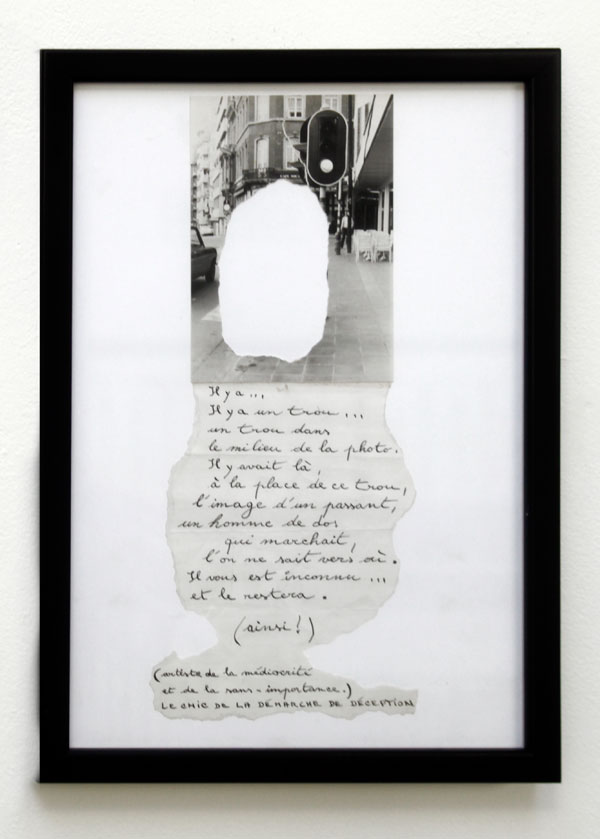 Il y a ...
Il y a un trou ...
un trou dans
le milieu de la photo.
Il y avait là,
à la place de ce trou,
l'image d'un passant,
un homme de dos
qui marchait,
l'on ne sait vers où.
Il vous est inconnu ...
et le restera.
(ainsi!)
(artiste de la médiocrité
et de la sans-importance.)
LE CHIC DE LA DÉMARCHE DE DÉCEPTION